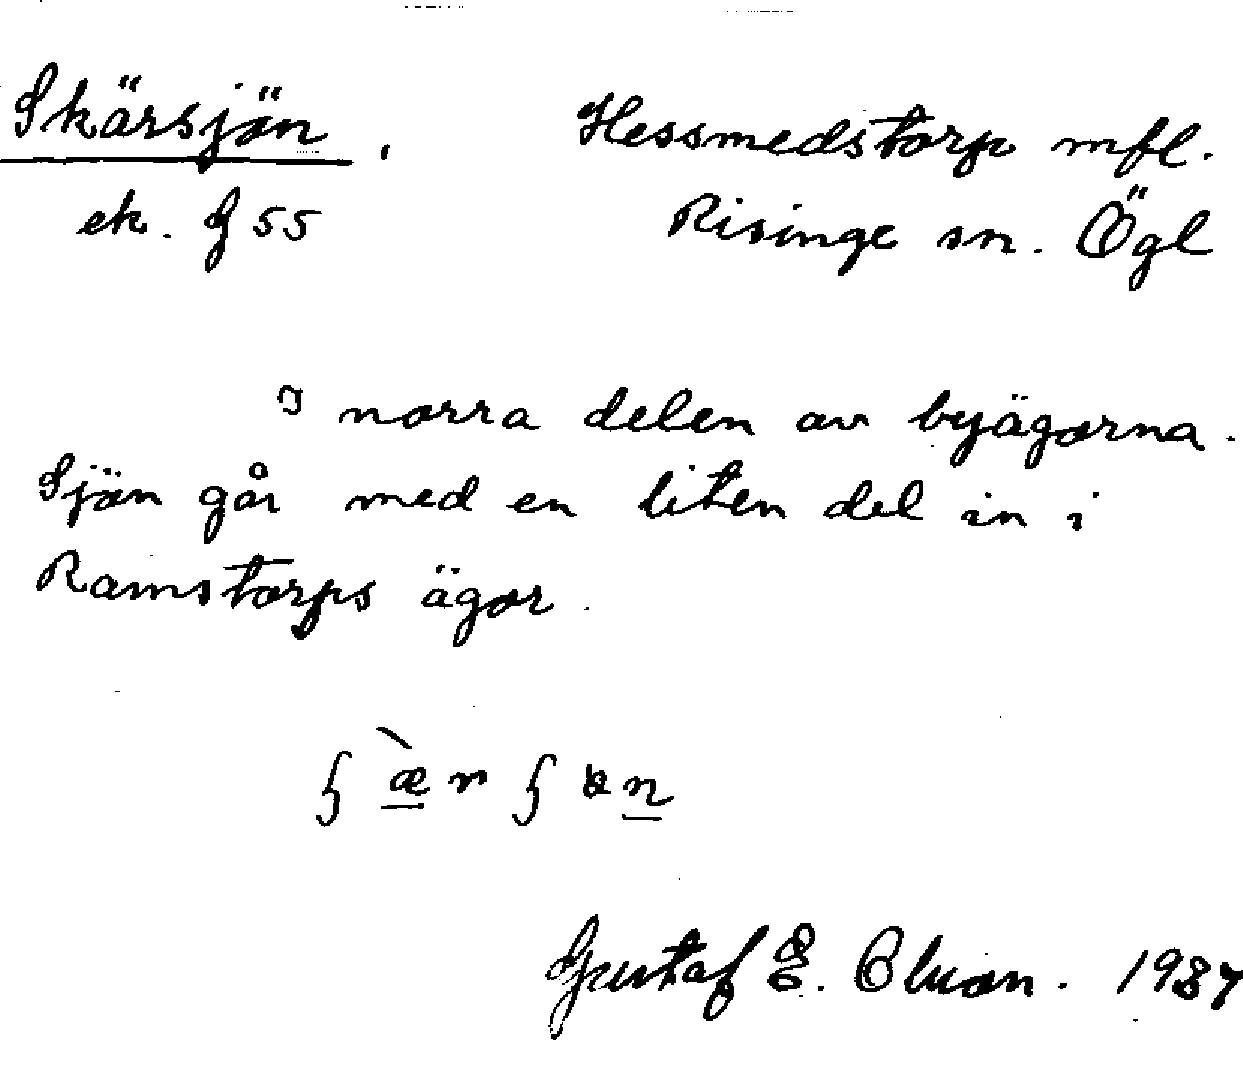 Skärsjön,
Hessmedstorp mfl.
ek. g 55
Risinge sn. Ögl
I norra delen av byägorna.
Sjön går med en liten del in i
Ramstorps ägor.
Gustaf E. Olson. 1937